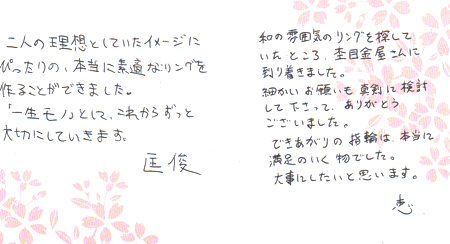 二人の理想としていたイメージに
ぴったりの、本当に素適なリングを
作ることができました。
「一生モノ」として、これからずっと
大切にしていきます。
匡俊
和の雰囲気のリングを探して
いたところ、杢目金屋さんに
到り着きました。
細かいお願いも真剣に検討
して下さって、ありがとう
ございました。
できあがりの指輪は、本当に
満足のいく物でした。
大事にしたいと思います。
恵